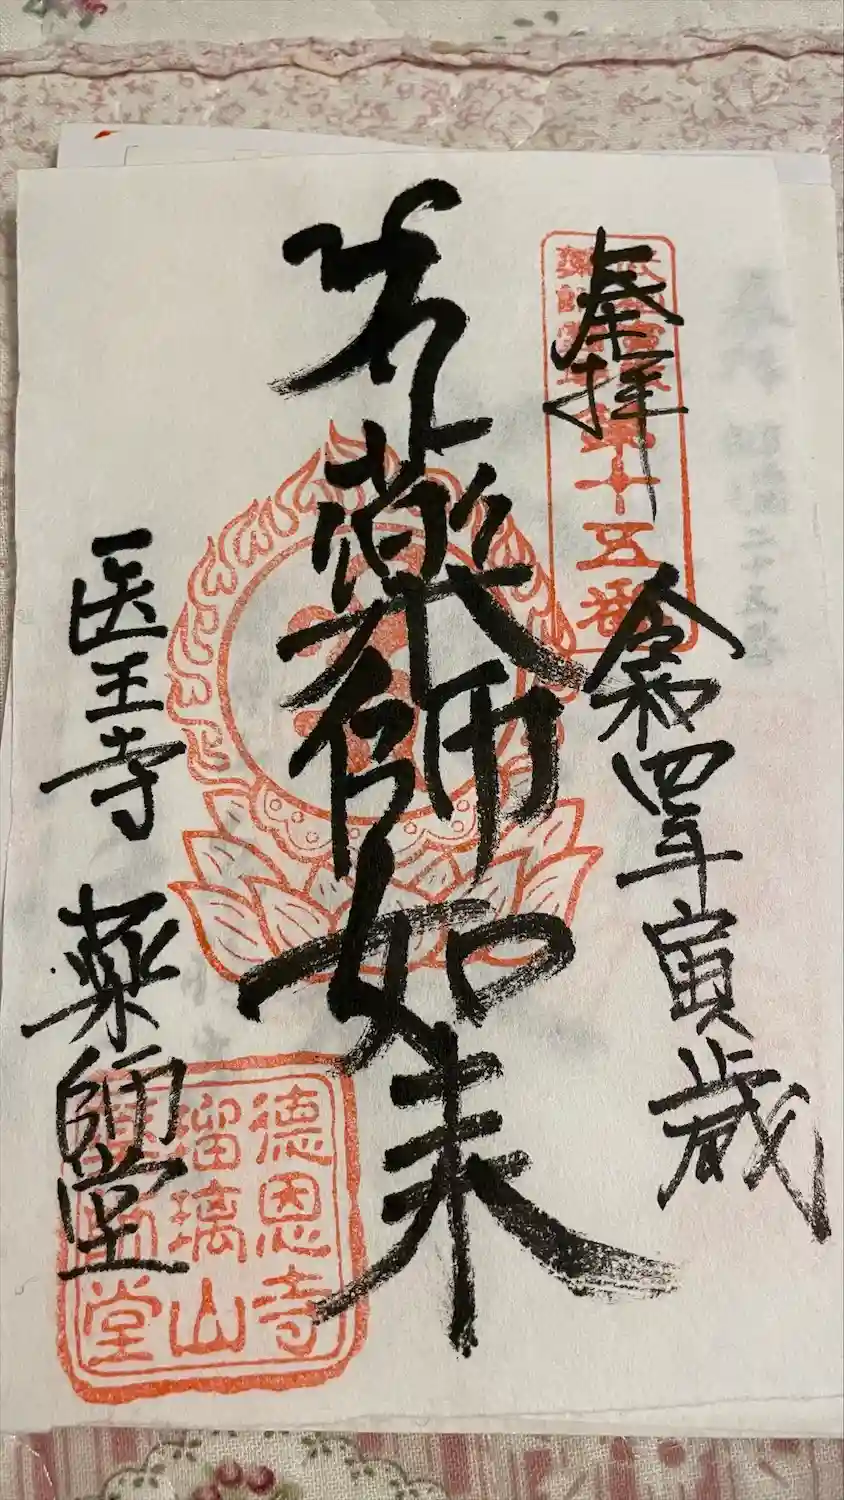 奉拝
第十五番
令和四年寅歳
薬師如来
医王寺 薬師堂
徳恩寺
瑠璃山
薬師堂